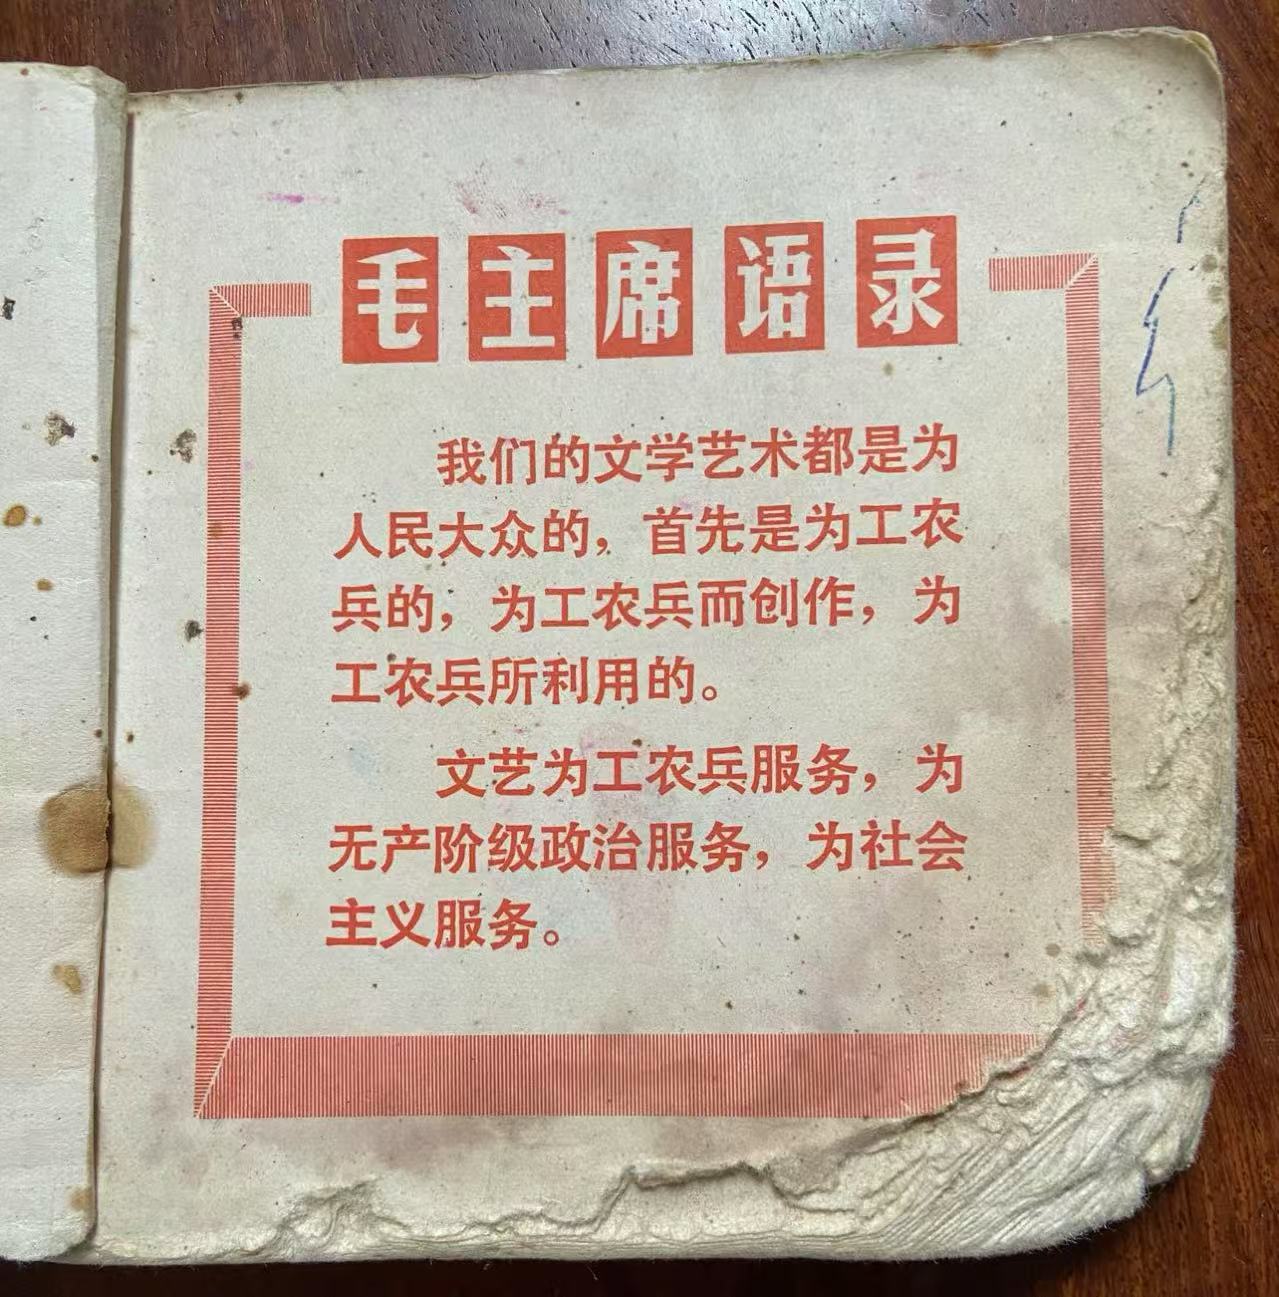 毛主席语录
我们的文学艺术都是为
人民大众的，首先是为工农
兵的，为工农兵而创作，为
工农兵所利用的。
文艺为工农兵服务，为
无产阶级政治服务，为社会
主义服务。